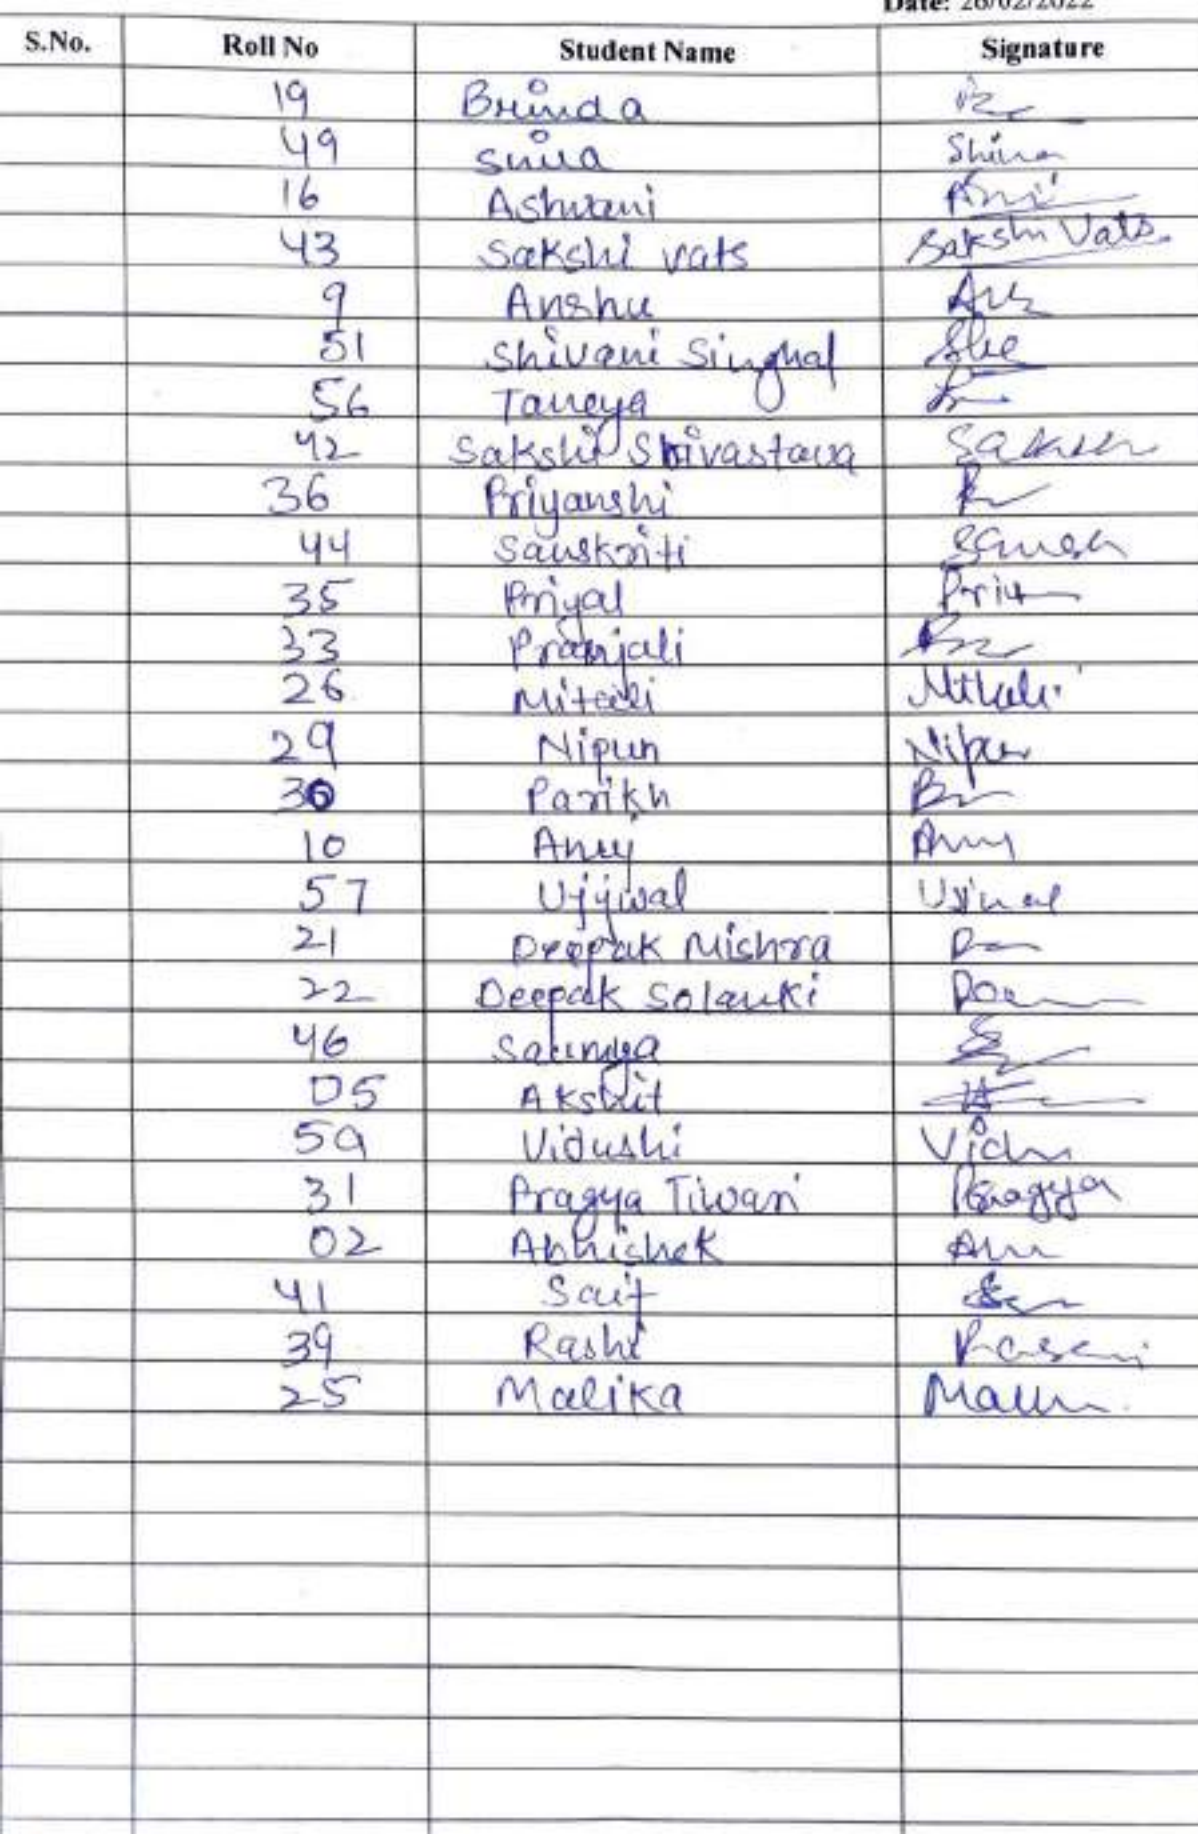 Date: 26/02/2022
S.No. Roll No Student Name Signature
19 Brinda
49 Shiva Shiva
16 Ashwani
43 Sakshi vats Sakshi Vats
9 Anshu
51 Shivani Singhal
56 Taneya
42 Sakshi Shrivastava Sakshi
36 Priyanshi
44 Sanskriti
35 Priyal
33 Pranjali
26 Mitali
29 Nipun Nipun
30 Parikh
10 Anuj
57 Ujjwal Ujjwal
21 Deepak Mishra
22 Deepak Solanki
46 Saumya
05 Akshit
59 Vidushi
31 Pragya Tiwari Pragya
02 Abhishek
41 Saif
39 Rashi
25 Malika